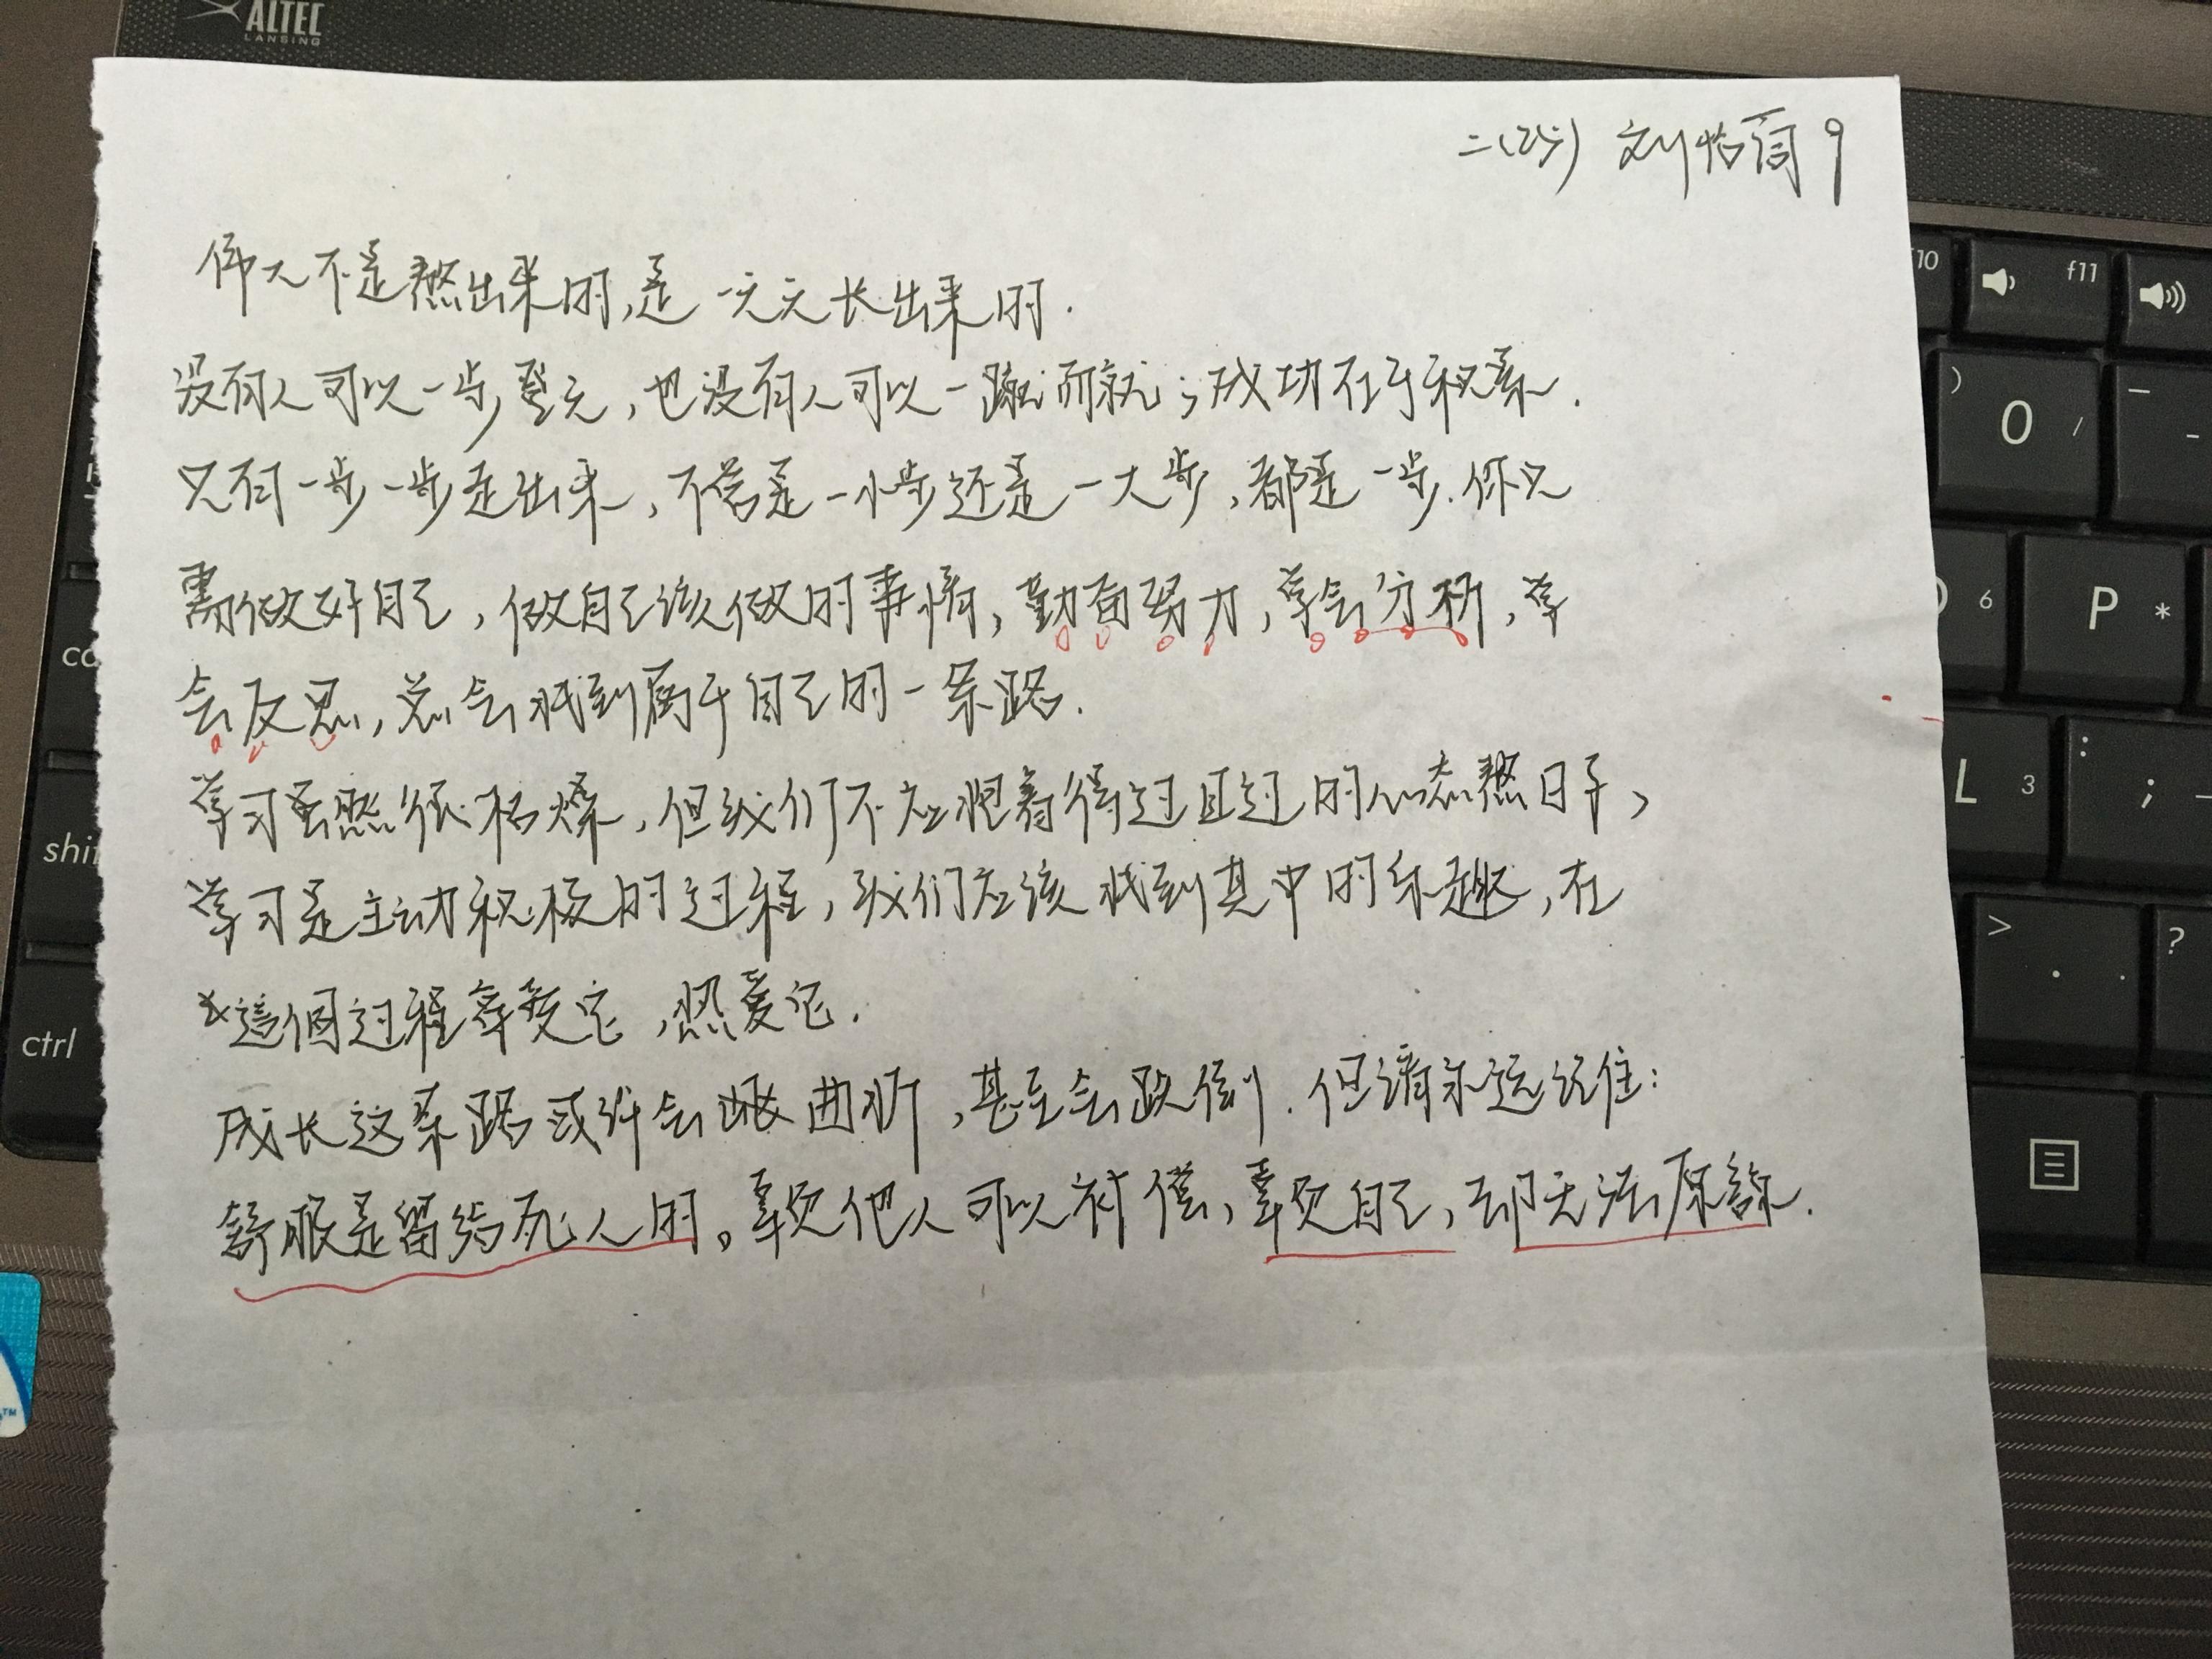 ALTEC
LANSING
二(25) 刘怡 9
伟大不是熬出来的,是一天天长出来的.
没有人可以一步登天,也没有人可以一蹴而就;成功在于积累.
只有一步一步走出来,不管是一小步还是一大步,都是一步.你只
需做好自己,做自己该做的事情,勤奋努力,学会分析,学
会反思,总会找到属于自己的一条路.
学习虽然很枯燥,但我们不应抱着得过且过的心态熬日子,
学习是主动积极的过程,我们应该找到其中的乐趣,在
這個过程享受它,热爱它.
成长这条路或许会很曲折,甚至会跌倒.但请永远记住:
舒服是留给死人的。辜负他人可以补偿,辜负自己,却无法原諒.
f10
f11
)
0
/
-
-
6
P
*
L
3
:
;
-
>
.
.
?
shif
ctrl
TM